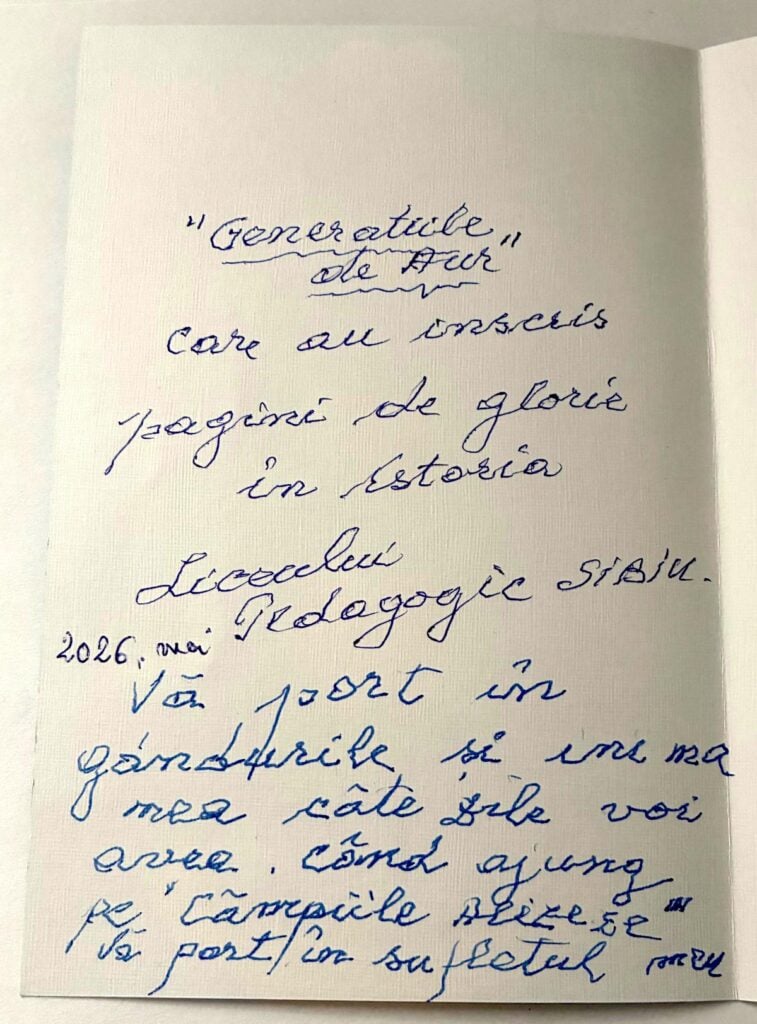 "Generatiile
de Aur"
care au inscris
pagini de glorie
în istoria
Liceului
Pedagogic SiBiU.
2026, mai
Vă port în
gândurile si inima
mea câte zile voi
avea. Când ajung
pe "Câmpiile Elizee"
Vă port în sufletul meu